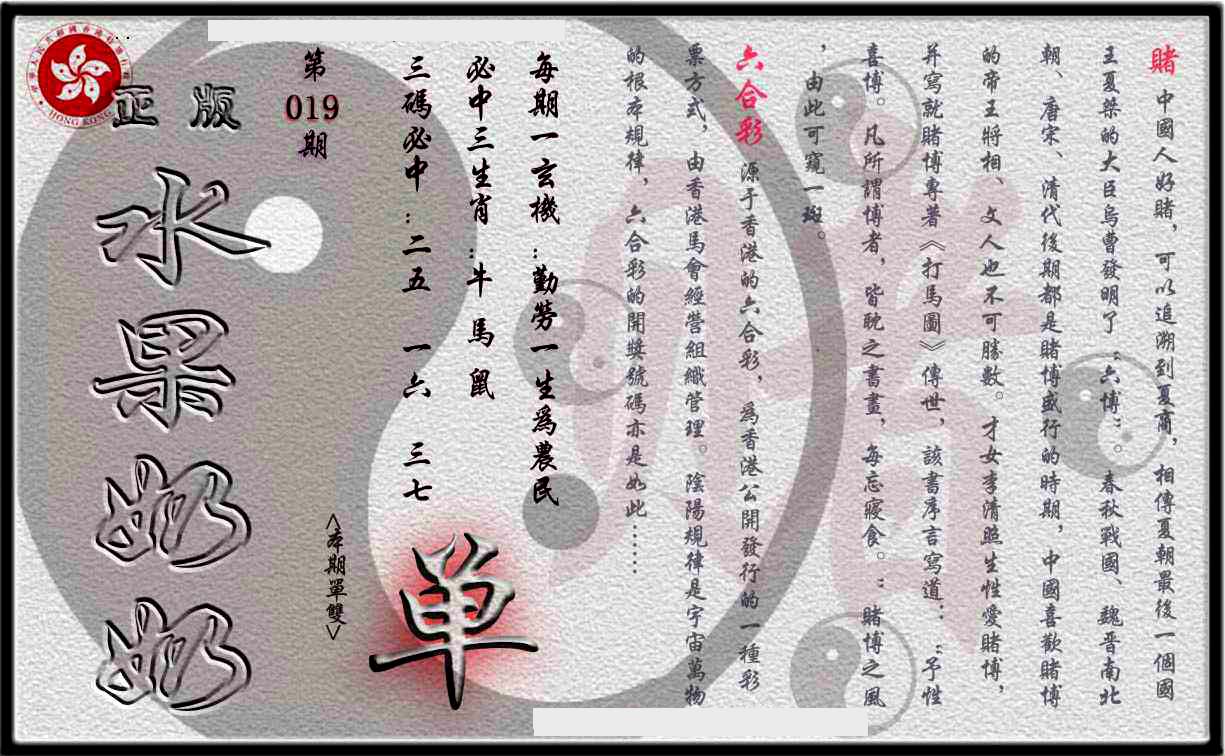 賭 中國人好賭，可以追溯到夏商，相傳夏朝最後一個國
王夏桀的大臣烏曹發明了“六博”。春秋戰國、魏晋南北
朝、唐宋、清代後期都是賭博盛行的時期，中國喜歡賭博
的帝王將相、文人也不可勝數。才女李清照生性愛賭博，
并寫就賭博專著《打馬圖》傳世，該書序言寫道：“予性
喜博。凡所謂博者，皆耽之書畫，每忘寢食。”賭博之風
，由此可窺一斑。
六合彩 源于香港的六合彩，爲香港公開發行的一種彩
票方式，由香港馬會經營組織管理。陰陽規律是宇宙萬物
的根本規律，六合彩的開獎號碼亦是如此……
每期一玄機：勤勞一生爲農民
必中三生肖：牛 馬 鼠
三碼必中：二五 一六 三七
单
<本期單雙>
第
019
期
正版
水果奶奶
HONG KONG